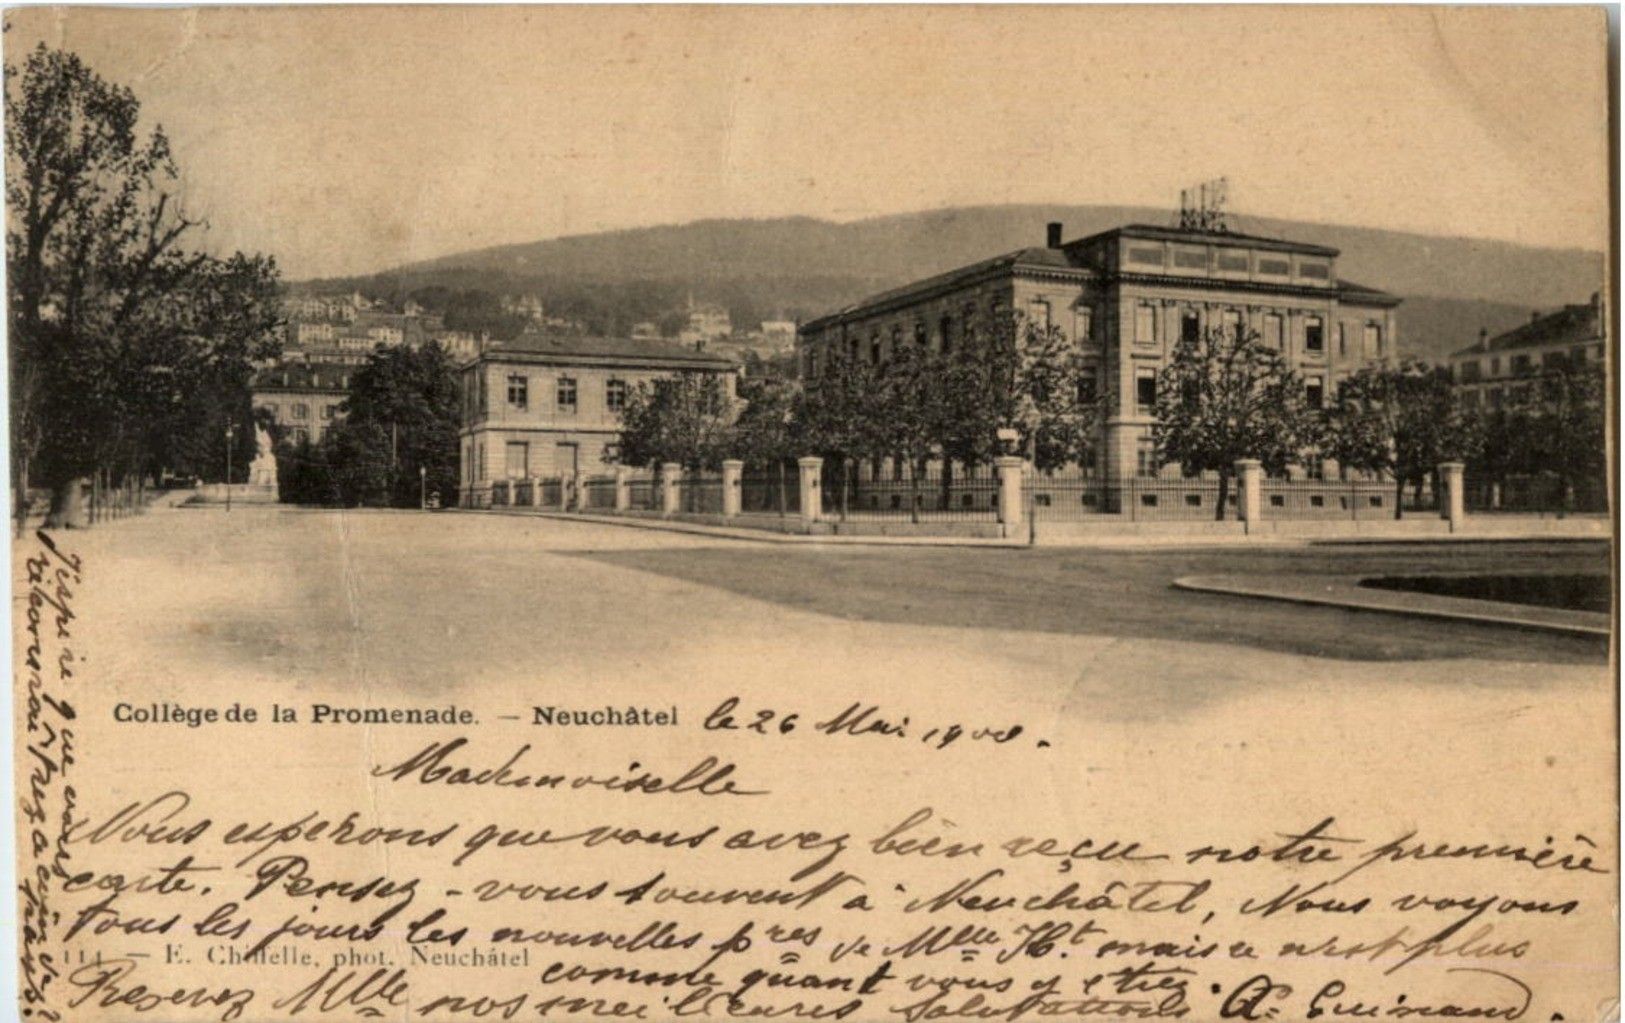 Collège de la Promenade. – Neuchâtel le 26 Mai
Mademoiselle
Nous espérons que vous avez bien reçu notre première
carte. Pensez-vous souvent à Neuchâtel, Nous voyons
tous les jours les nouvelles de Mlle Ht. mais ce n'est plus
114 – E. Chiffelle, phot. Neuchâtel
comme quant vous y étiez.
Recevez Mlle nos meilleures Salutations
J'espère que vous